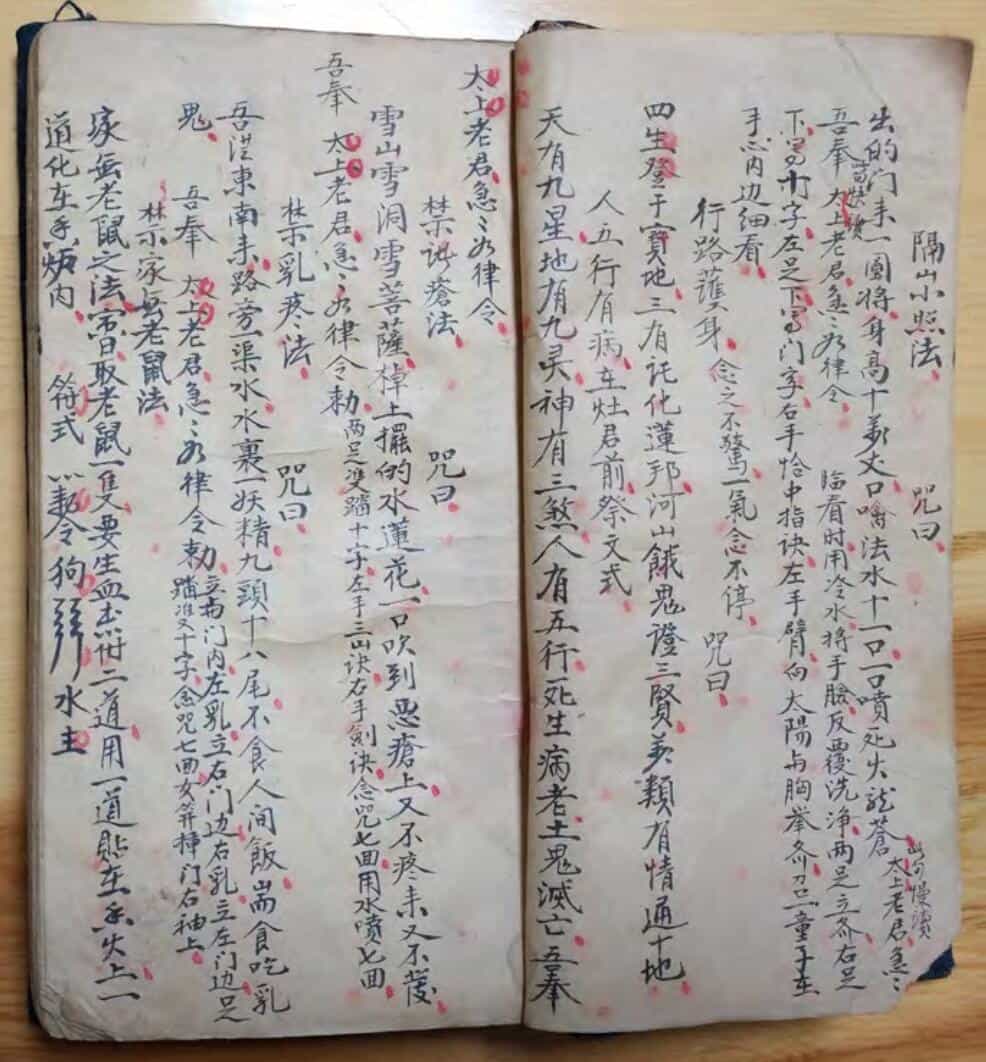 隔山小照法　咒曰
出的门来一园将身高十万丈口噙法水十一口一口喷死火龙苍太上老君急〻
此句慢读
吾奉太上老君急〻如律令　临看时用冷水将手脸反覆洗净两足立齐右足
下写十字左足下写门字右手恰中指诀左手臂向太阳与胸举齐召一童子在
手心内边细看
行路護身　念之不驚一氣念不停　咒曰
四生登于宝地三有託化蓮邦河山餓鬼證三賢万類有情通十地
人五行有病在灶君前祭文式
天有九星地有九灵神有三煞人有五行死生病老土鬼滅亡吾奉
太上老君急〻如律令
禁沈瘡法　咒曰
雪山雪洞雪菩薩棹上擺的水蓮花一口吹到惡瘡上又不疼来又不發
吾奉　太上老君急〻如律令勅　两足雙踏十字左手三山诀右手劍诀念咒七回用水噴七回
禁乳疼法　咒曰
吾從東南来路旁一渠水水裏一妖精九頭十八尾不食人间飯耑食吃乳
鬼　吾奉　太上老君急〻如律令勅　立两门内左乳立右门边右乳立左门边足
踏双十字念咒七回女笄挿门右袖上
禁家無老鼠法
家無老鼠之法宿日取老鼠一隻要生血書符二道用一道貼在香火上一
道化在香炉内　符式　令狗　水土